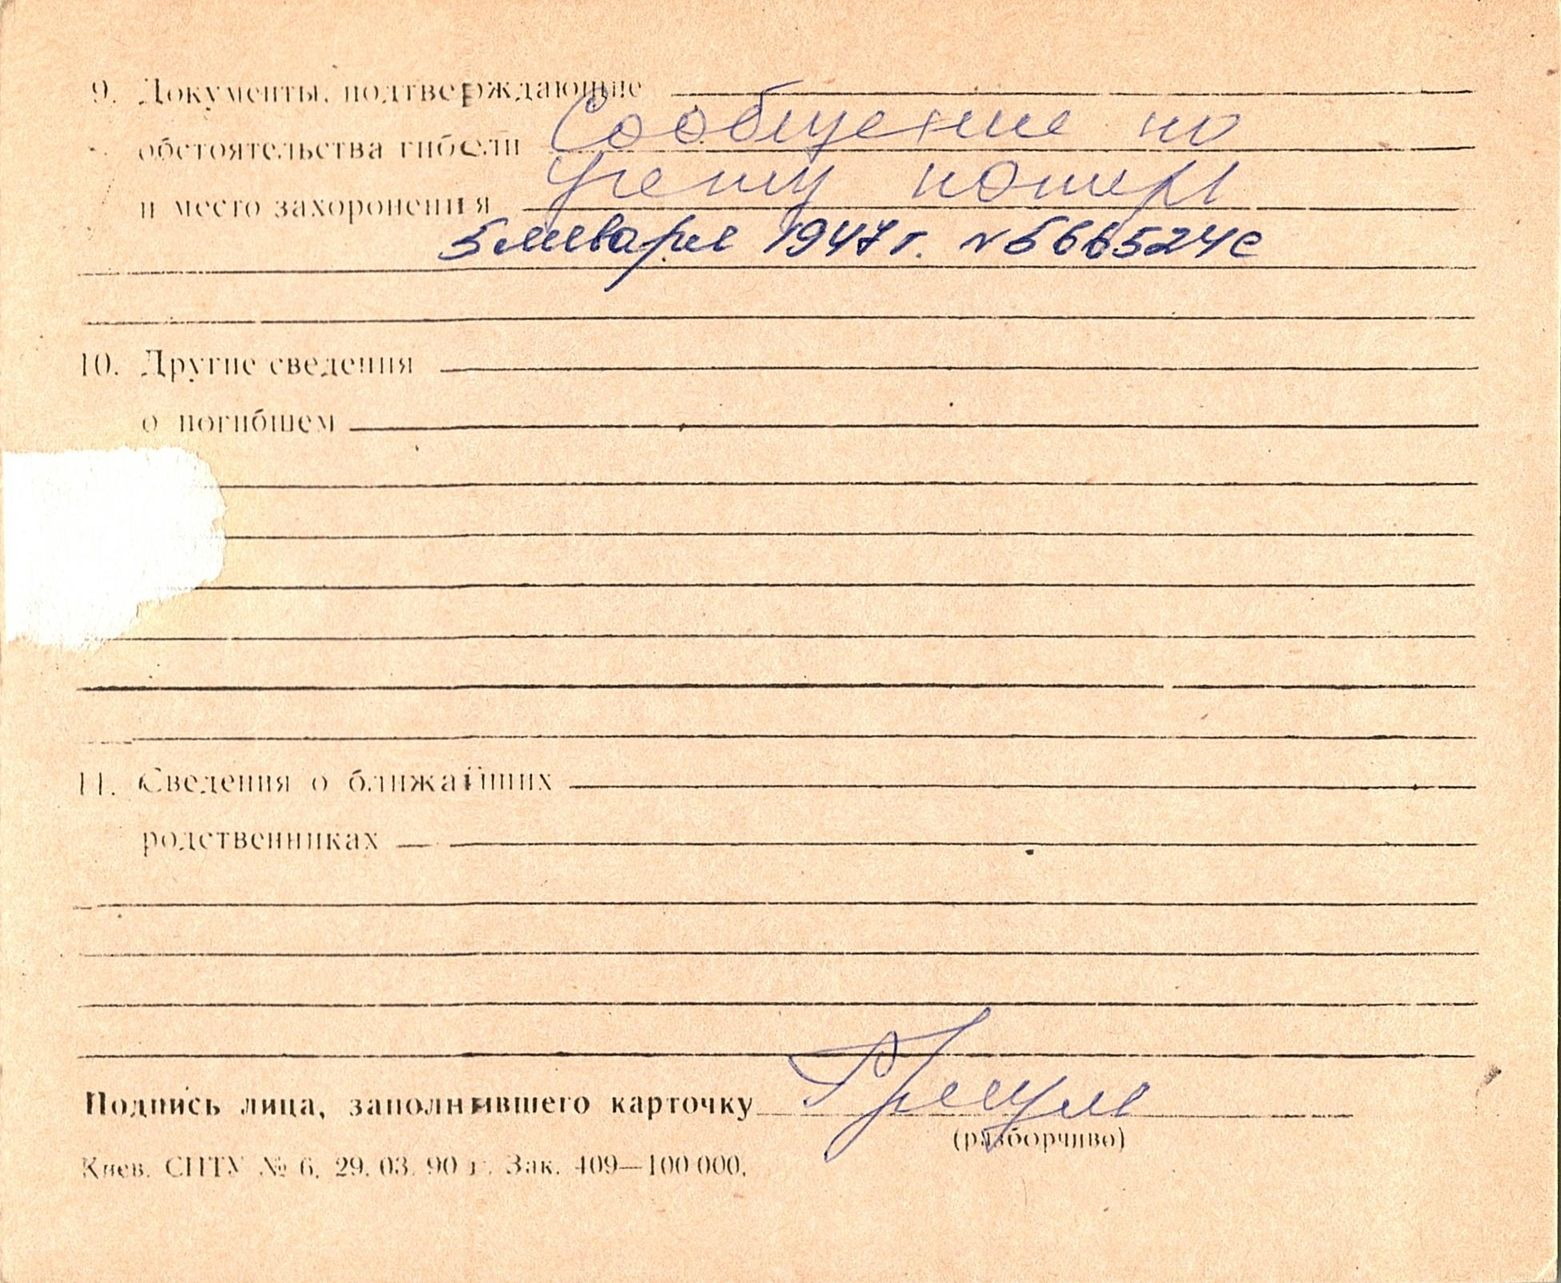 9. Документы, подтверждающие
обстоятельства гибели Сообщение по
и место захоронения учету потерь
5 января 1947 г. № 566524с
10. Другие сведения
о погибшем
11. Сведения о ближайших
родственниках
Подпись лица, заполнившего карточку
(разборчиво)
Киев. СПТУ № 6. 29. 03. 90 г. Зак. 409—100 000.